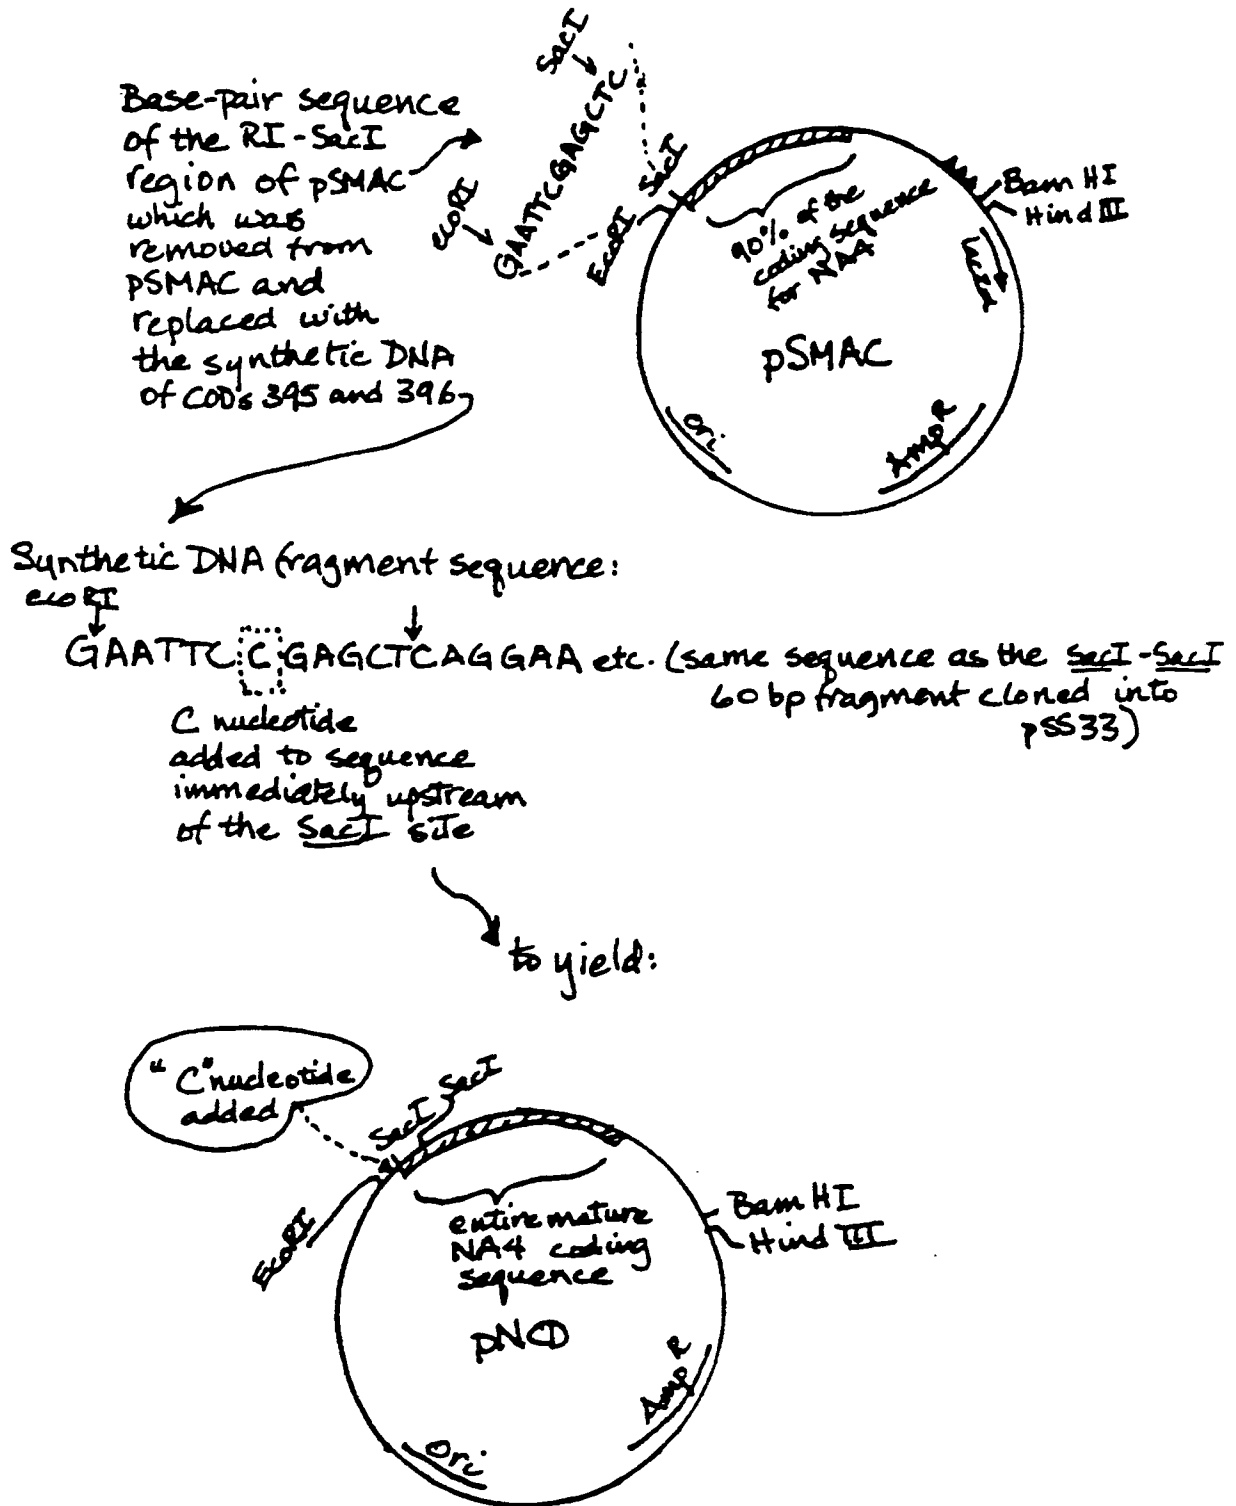 Base-pair sequence
of the RI-SacI
region of pSMAC
which was
removed from
pSMAC and
replaced with
the synthetic DNA
of COD's 395 and 396
SacI
GAATTCGAGCTC
ecoRI
EcoRI
SacI
90% of the
coding sequence
for NA4
Bam HI
Hind III
pSMAC
Ori
AmpR
Synthetic DNA fragment sequence:
ecoRI
GAATTC C GAGCTCAGGAA etc. (same sequence as the SacI-SacI
60 bp fragment cloned into
pSS33)
C nucleotide
added to sequence
immediately upstream
of the SacI site
to yield:
"C" nucleotide
added
SacI
SacI
EcoRI
entire mature
NA4 coding
sequence
Bam HI
Hind III
pNCD
AmpR
Ori